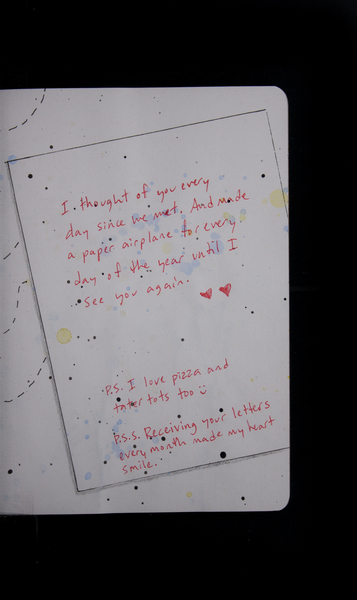 I thought of you every
day since we met. And made
a paper airplane for every
day of the year until I
see you again.
P.S. I love pizza and
tater tots too
P.S.S. Receiving your letters
every month made my heart
smile.